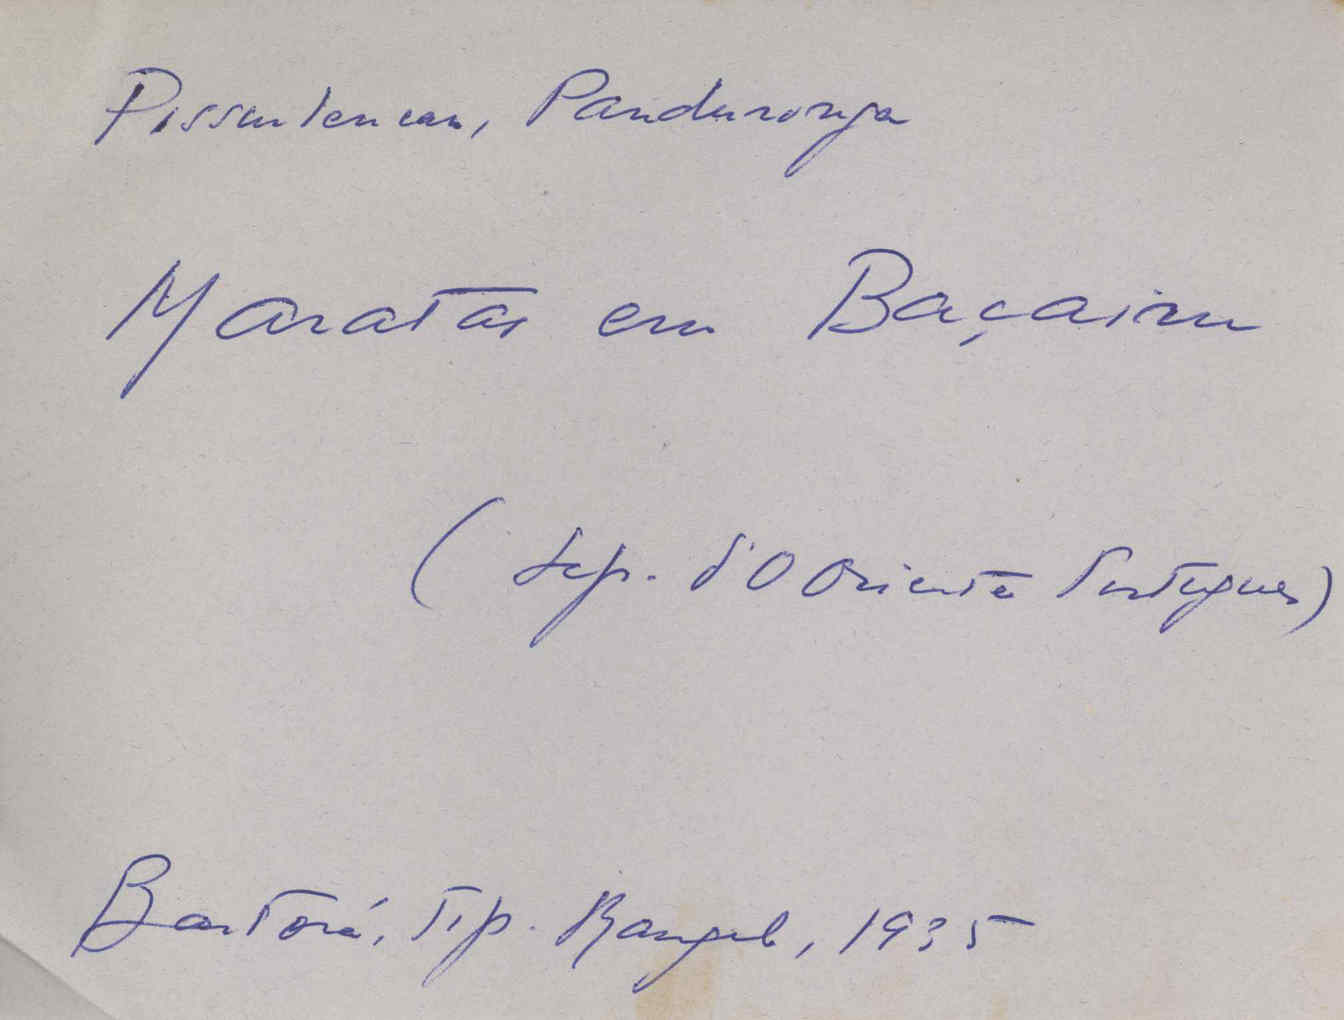 Pissurlencar, Panduronga
Maratas em Baçaim
(Sep. d'O Oriente Portugues)
Bastorá, Tip. Rangel, 1935